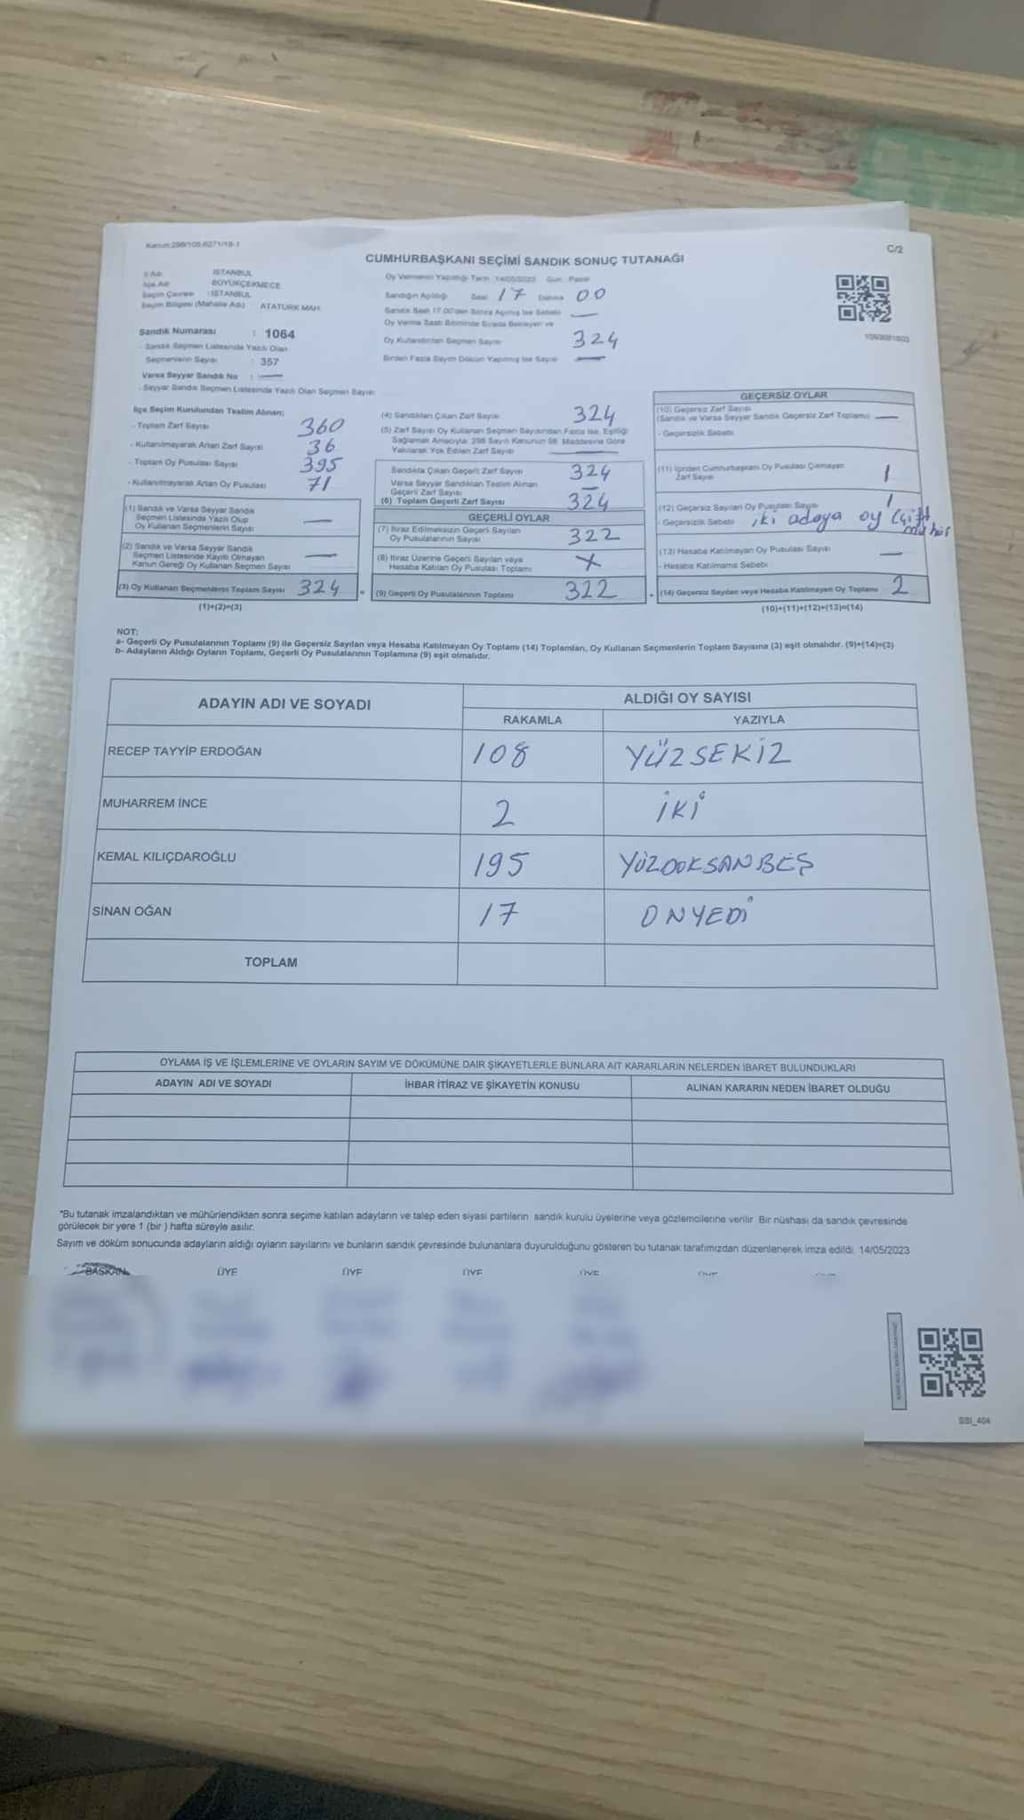 Kanun:298/105-6271/18-1
C/2
CUMHURBAŞKANI SEÇİMİ SANDIK SONUÇ TUTANAĞI
İl Adı : İSTANBUL
İlçe Adı : BÜYÜKÇEKMECE
Seçim Çevresi : İSTANBUL
Seçim Bölgesi (Mahalle Adı) ATATÜRK MAH.
Sandık Numarası : 1064
- Sandık Seçmen Listesinde Yazılı Olan
Seçmenlerin Sayısı : 357
Varsa Seyyar Sandık No : —
- Seyyar Sandık Seçmen Listesinde Yazılı Olan Seçmen Sayısı
Oy Vermenin Yapıldığı Tarih 14/05/2023 Gün Pazar
Sandığın Açıldığı Saat 17 Dakika 00
Sandık Saat 17.00'den Sonra Açılmış İse Sebebi —
Oy Verme Saati Bitiminde Sırada Bekleyen ve
Oy Kullandırılan Seçmen Sayısı 324
Birden Fazla Sayım Döküm Yapılmış İse Sayısı —
İlçe Seçim Kurulundan Teslim Alınan;
- Toplam Zarf Sayısı 360
- Kullanılmayarak Artan Zarf Sayısı 36
- Toplam Oy Pusulası Sayısı 395
- Kullanılmayarak Artan Oy Pusulası 71
(1) Sandık ve Varsa Seyyar Sandık
Seçmen Listesinde Yazılı Olup
Oy Kullanan Seçmenlerin Sayısı —
(2) Sandık ve Varsa Seyyar Sandık
Seçmen Listesinde Kayıtlı Olmayan
Kanun Gereği Oy Kullanan Seçmen Sayısı —
(3) Oy Kullanan Seçmenlerin Toplam Sayısı 324
(1)+(2)=(3)
(4) Sandıktan Çıkan Zarf Sayısı 324
(5) Zarf Sayısı Oy Kullanan Seçmen Sayısından Fazla İse, Eşitliği
Sağlamak Amacıyla 298 Sayılı Kanunun 98. Maddesine Göre
Yakılarak Yok Edilen Zarf Sayısı —
Sandıkta Çıkan Geçerli Zarf Sayısı 324
Varsa Seyyar Sandıktan Teslim Alınan
Geçerli Zarf Sayısı —
(6) Toplam Geçerli Zarf Sayısı 324
GEÇERLİ OYLAR
(7) İtiraz Edilmeksizin Geçerli Sayılan
Oy Pusulalarının Sayısı 322
(8) İtiraz Üzerine Geçerli Sayılan veya
Hesaba Katılan Oy Pusulası Toplamı X
(9) Geçerli Oy Pusulalarının Toplamı 322
GEÇERSİZ OYLAR
(10) Geçersiz Zarf Sayısı
(Sandık ve Varsa Seyyar Sandık Geçersiz Zarf Toplamı) —
- Geçersizlik Sebebi
(11) İçinden Cumhurbaşkanı Oy Pusulası Çıkmayan
Zarf Sayısı 1
(12) Geçersiz Sayılan Oy Pusulası Sayısı 1
- Geçersizlik Sebebi iki adaya oy (çift
mühür
(13) Hesaba Katılmayan Oy Pusulası Sayısı —
- Hesaba Katılmama Sebebi
(14) Geçersiz Sayılan veya Hesaba Katılmayan Oy Toplamı 2
(10)+(11)+(12)+(13)=(14)
NOT:
a- Geçerli Oy Pusulalarının Toplamı (9) ile Geçersiz Sayılan veya Hesaba Katılmayan Oy Toplamı (14) Toplamları, Oy Kullanan Seçmenlerin Toplam Sayısına (3) eşit olmalıdır. (9)+(14)=(3)
b- Adayların Aldığı Oyların Toplamı, Geçerli Oy Pusulalarının Toplamına (9) eşit olmalıdır.
ADAYIN ADI VE SOYADI
ALDIĞI OY SAYISI
RAKAMLA YAZIYLA
RECEP TAYYİP ERDOĞAN 108 YÜZSEKİZ
MUHARREM İNCE 2 İKİ
KEMAL KILIÇDAROĞLU 195 YÜZDOKSANBEŞ
SİNAN OĞAN 17 ONYEDİ
TOPLAM
OYLAMA İŞ VE İŞLEMLERİNE VE OYLARIN SAYIM VE DÖKÜMÜNE DAİR ŞİKAYETLERLE BUNLARA AİT KARARLARIN NELERDEN İBARET BULUNDUKLARI
ADAYIN ADI VE SOYADI İHBAR İTİRAZ VE ŞİKAYETİN KONUSU ALINAN KARARIN NEDEN İBARET OLDUĞU
"Bu tutanak imzalandıktan ve mühürlendikten sonra seçime katılan adayların ve talep eden siyasi partilerin sandık kurulu üyelerine veya gözlemcilerine verilir. Bir nüshası da sandık çevresinde
görülecek bir yere 1 (bir ) hafta süreyle asılır.
Sayım ve döküm sonucunda adayların aldığı oyların sayılarını ve bunların sandık çevresinde bulunanlara duyurulduğunu gösteren bu tutanak tarafımızdan düzenlenerek imza edildi. 14/05/2023
BAŞKAN ÜYE ÜYE ÜYE ÜYE
SSI_404